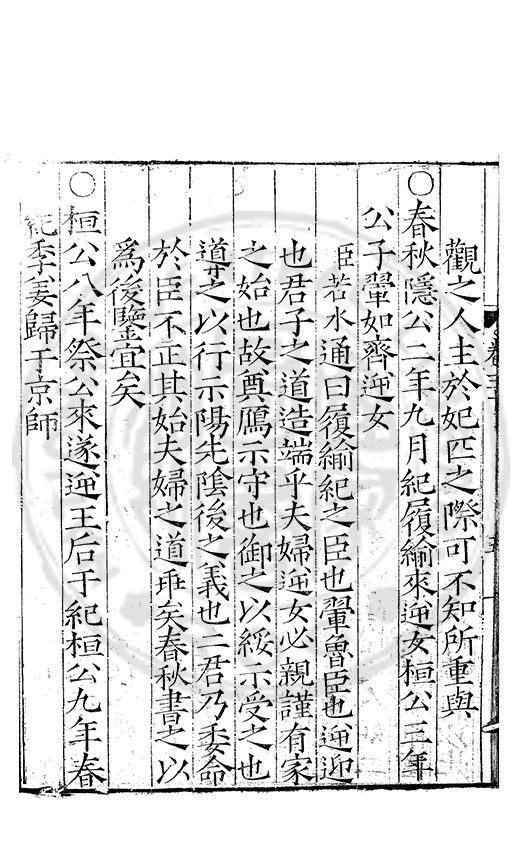 觀之人主於妃匹之際可不知所重與
○春秋隱公二年九月紀履緰來逆女桓公三年
公子翬如齊逆女
臣若水通曰履緰紀之臣也翬魯臣也逆迎
也君子之道造端乎夫婦逆女必親謹有家
之始也故奠鴈示守也御之以綏示受之也
導之以行示陽先陰後之義也二君乃委命
於臣不正其始夫婦之道乖矣春秋書之以
爲後鑒宜矣
○桓公八年祭公來遂逆王后于紀桓公九年春
紀季姜歸于京師